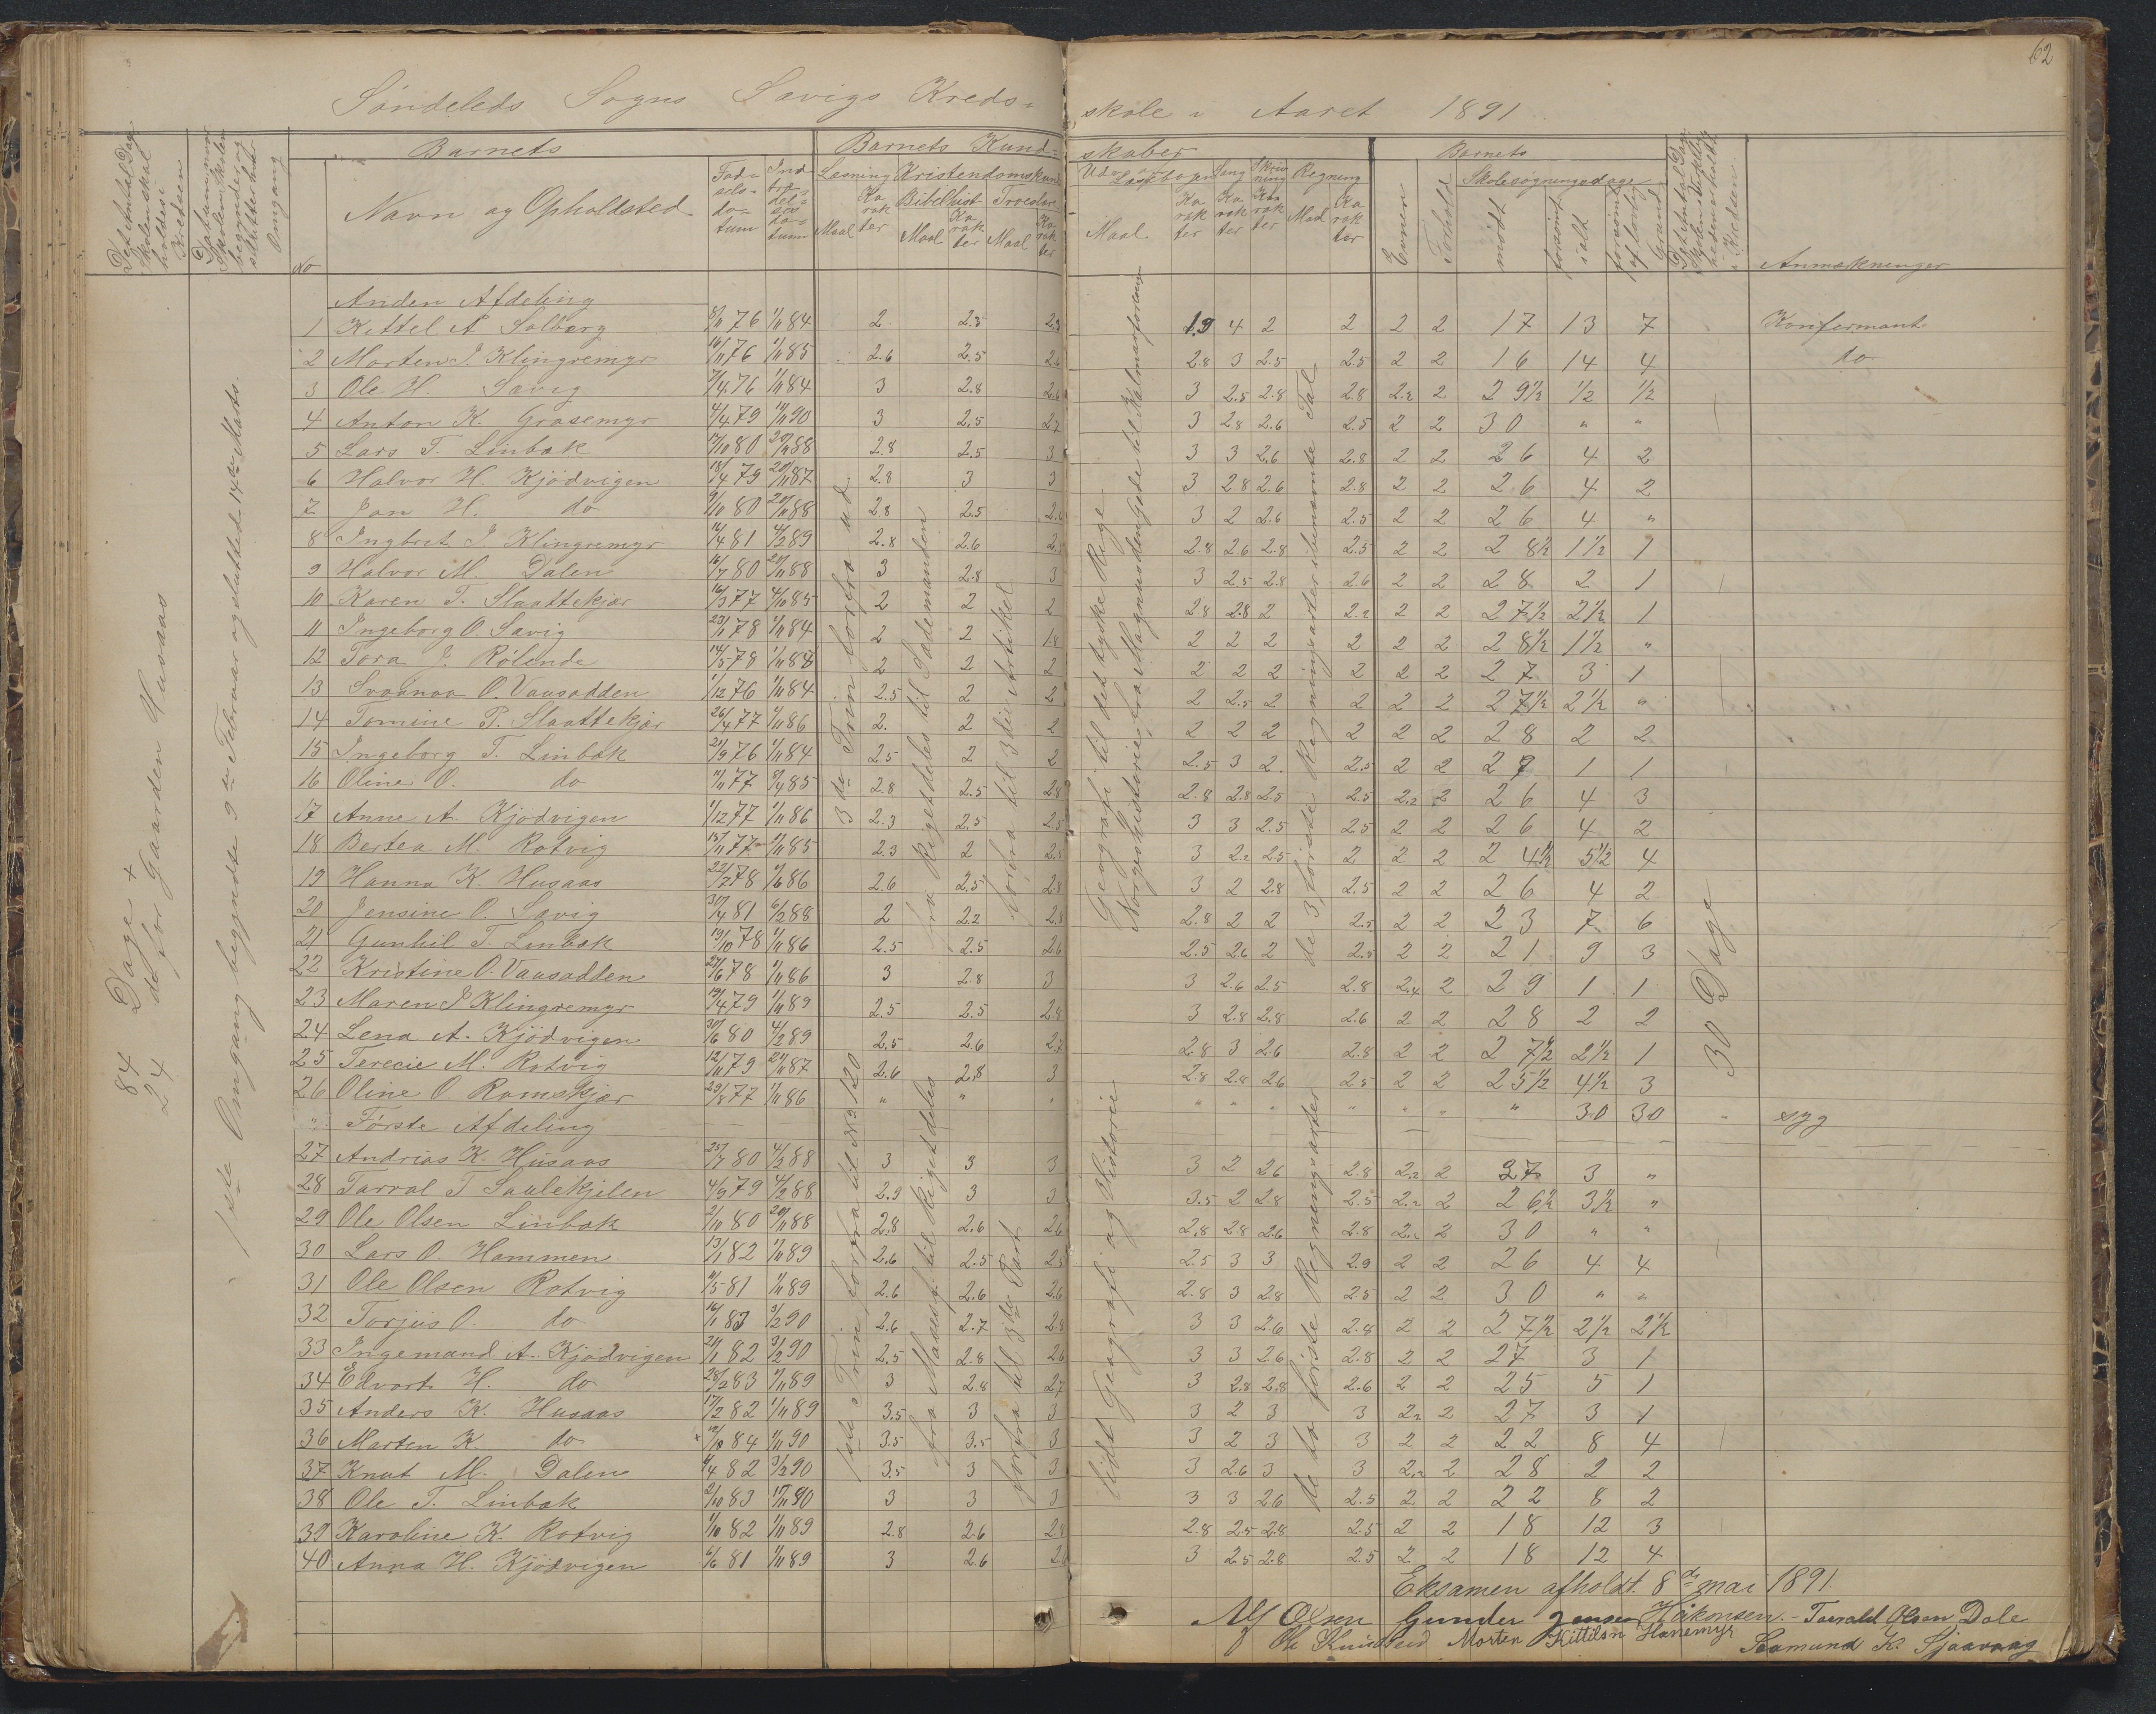 62
Söndeleds Sogns Savigs Kreds=
skole i Aaret 1891
Det Antal Dage Skolen skal holdes i Kredsen
Datum naar Skolen begynder og slutter hver Omgang
No
Barnets
Navn og Opholdsted
Fød=sels=da=tum
Ind træ=del=ses da=tum
Barnets Kund=
skaber
Læsning
Kristendomskund
Bibelhist
Troeslære
Maal
Karakter
Maal
Karakter
Maal
Karakter
Udv. af Læsebogen
Sang
Skrivning
Regning
Maal
Karakter
Karakter
Karakter
Maal
Karakter
Barnets
Evner
Forhold
Skolesøgningsdage
mödt
forsömt ialt
forsömt af lovlig Grund
Det Antal Dage Skolen i Virkeligheden er holdt i Kredsen
Anmærkninger
84 Dage +
24 do for Gaarden Husaas
1ste Omgang begyndte 9de Februar og slutted 14de Marts.
Anden Afdeling
1 Kittel A Solberg 8/11 76 1/11 84 2 2.3 2.3 1.9 4 2 2 2 2 17 13 7 Konfermant
2 Morten J. Klingremyr 16/11 76 1/11 85 2.6 2.5 2.6 2.8 3 2.5 2.5 2 2 16 14 4 do
3 Ole H. Savig 7/4 76 1/11 84 3 2.8 2.6 3 2.5 2.8 2.8 2.2 2 29½ ½ ½
4 Anton K. Grasemyr 4/4 79 11/11 90 3 2.5 2.7 3 2.8 2.6 2.5 2 2 30 " "
5 Lars T. Linbæk 17/10 80 20/11 88 2.8 2.5 3 3 3 2.6 2.8 2 2 26 4 2
6 Halvor H. Kjödvigen 18/4 79 20/11 87 2.8 3 3 3 2.8 2.6 2.8 2 2 26 4 2
7 Jan H. do 9/10 80 20/11 88 2.8 2.5 2.6 3 2 2.6 2.5 2 2 26 4 "
8 Ingbret J Klingremyr 16/4 81 4/2 89 2.8 2.6 2.8 2.8 2.6 2.8 2.5 2 2 28½ 1½ 1
9 Halvor M. Dalen 16/7 80 20/11 88 3 2.8 3 3 2.5 2.8 2.6 2 2 28 2 1
10 Karen T. Slaattekjær 16/3 77 4/10 85 2 2 2 2.8 2.8 2 2.2 2 2 27½ 2½ 1
11 Ingeborg O. Savig 23/1 78 1/11 84 2 2 1.8 2 2 2 2 2 2 28½ 1½ "
12 Tora J. Rölende 14/5 78 1/11 87 2 2 2 2 2 2 2 2 2 27 3 1
13 Svaanaa O. Vaasadden 1/12 76 1/11 84 2.5 2 2 2 2.5 2 2 2 2 27½ 2½ "
14 Tomine P. Slaattekjær 26/4 77 1/11 86 2. 2 2 2 2 2 2 2 2 28 2 2
15 Ingeborg T. Linbæk 21/9 76 1/11 84 2.5 2 2 2.5 3 2. 2.5 2 2 29 1 1
16 Oline O. do 11/11 77 9/4 85 2.8 2.5 2.8 2.8 2.8 2.5 2.5 2.2 2 26 4 3
17 Anne A. Kjödvigen 1/12 77 1/11 86 2.3 2.5 2.5 3 3 2.5 2.5 2 2 26 4 2
18 Bertea M. Rotvig 15/11 77 1/11 85 2.3 2 2.5 3 2.2 2.5 2 2 2 24½ 5½ 4
19 Hanna K. Husaas 22/7 78 9/6 86 2.6 2.5 2.8 3 2 2.8 2.5 2 2 26 4 2
20 Jensine O. Savig 30/4 81 6/2 88 2 2.2 2.8 2.8 2 2 2.5 2 2 23 7 6
21 Gunhil T. Linbæk 19/10 78 1/11 86 2.5 2.5 2.6 2.5 2.6 2 2.5 2 2 21 9 3
22 Kristine O. Vaasadden 27/6 78 1/11 86 3 2.8 3 3 2.6 2.5 2.8 2.4 2 29 1 1
23 Maren J Klingremyr 19/4 79 1/11 89 2.5 2.5 2.8 3 2.8 2.8 2.6 2 2 28 2 2
24 Lena A. Kjödvigen 30/6 80 4/2 89 2.5 2.6 2.7 2.8 3 2.6 2.8 2 2 27½ 2½ 1
25 Terecie M. Rotvig 12/11 79 24/11 87 2.6 2.8 3 2.8 2.8 2.6 2.5 2 2 25½ 4½ 3
26 Oline O. Romskjær 29/8 77 1/11 86 " " " " " " " " " " 30 30 " syg
" Förste Afdeling
27 Andrias K. Husaas 25/7 80 4/2 88 3 3 3 3 2 2.6 2.8 2.2 2 27 3 "
28 Tarral T Saulekjilen 4/9 79 4/2 88 2.9 3 3 3.5 2 2.8 2.5 2.2 2 26½ 3½ "
29 Ole Olsen Linbæk 2/10 80 20/11 88 2.8 2.6 2.6 2.8 2.8 2.6 2.8 2.2 2 30 " "
30 Lars O. Hammen 13/1 82 1/11 89 2.6 2.5 2.5 2.5 3 3 2.9 2 2 26 4 4
31 Ole Olsen Rotvig 11/5 81 1/11 89 2.6 2.6 2.6 2.8 3 2.8 2.5 2 2 30 " "
32 Torjus O. do 16/1 83 3/2 90 2.6 2.7 2.8 3 3 2.6 2.8 2 2 27½ 2½ 2½
33 Ingemand A. Kjödvigen 21/1 82 3/2 90 2.5 2.8 2.6 3 3 2.6 2.8 2 2 27 3 1
34 Edvart H. do 28/2 83 1/11 89 3 2.8 2.7 3 2.8 2.8 2.6 2 2 25 5 1
35 Anders K. Husaas 17/2 82 1/11 89 3.5 3 3 3 2 3 3 2.2 2 27 3 1
36 Marten K. do 12/10 84 1/11 90 3.5 3.5 3 3 2 3 3 2 2 22 8 4
37 Knut M. Dalen 9/4 82 3/2 90 3.5 3 3 3 2.6 3 3 2.2 2 28 2 2
38 Ole T. Linbæk 2/10 83 17/11 90 3 3 3 3 3 2.6 2.5 2 2 22 8 2
39 Karoline K. Rotvig 1/10 82 1/11 89 2.8 2.6 2.8 2.8 2.5 2.8 2.5 2 2 18 12 3
40 Anna H. Kjödvigen 6/6 81 1/11 89 3 2.6 3 2.5 2.8 2.5 2 2 18 12 4
3de Trin forfra ud
fra Rigetdeles til Sædemanden
forfra til 3die Artikel
Geografi til det tyske Rige
Norgeshistorie, fra Magnus den Gode til Kalmarforening
de 3 förste Regningsarter i benævnte Tal
30 Dage
1ste Trin forfra til No 120
fra Mases f. til Riget deles
forfra til 3die Part
lidt Geografi og Historie
de to förste Regningsarter
Eksamen afholdt 8de mai 1891.
Alf Olsen Gunder Jensen Håkonsen. - Tarald Olsen Dale
Ole Knudsen Morten Kittilsn Hanemyr
Saamund K. Sjaavaag